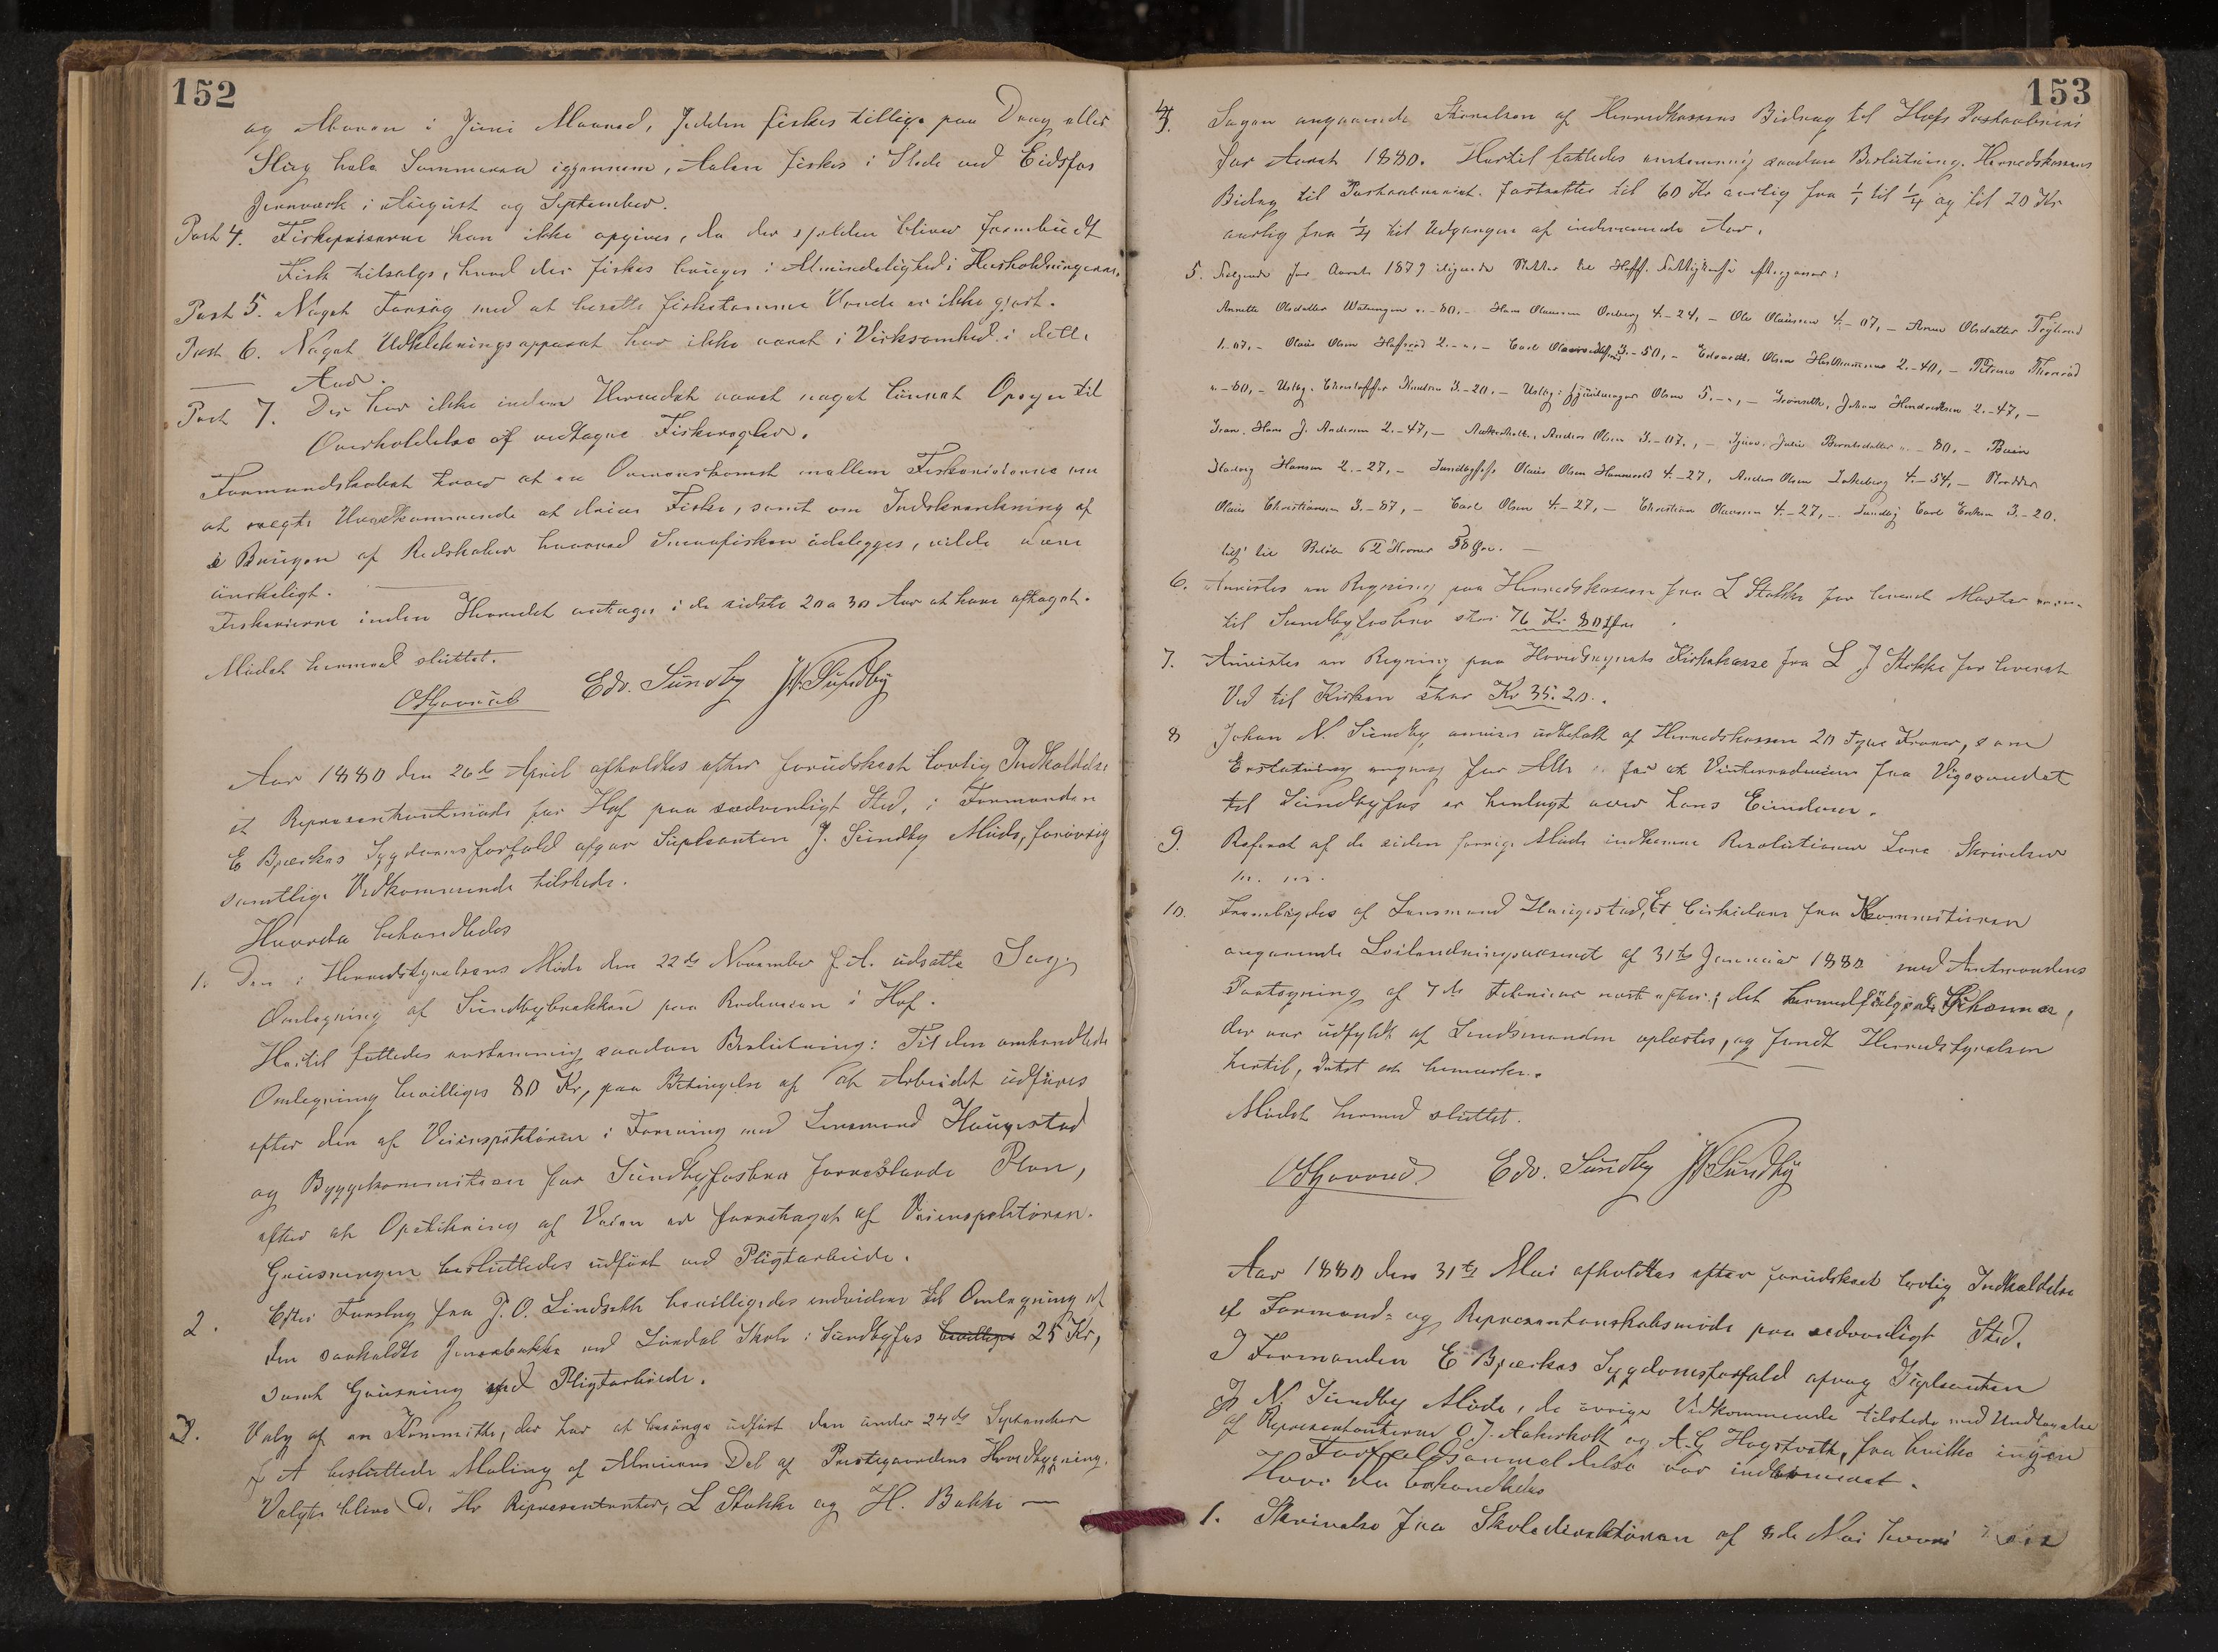 152
og Aboren i Juni Maaned, Jedden fiskes tillige paa Drag eller
Slug hele Sommeren igjennem, Aalen fiskes i Stede ved Eidsfos
Jernværk i August og September.
Post 4. Fiskepriserne kan ikke opgives, da der sjelden bliver frembudt
Fisk tilsalgs, hvad der fiskes bruges i Almindelighed i Husholdningerne.
Post 5. Noget Forsøg med at besætte fisketomme Vande er ikke gjort.
Post 6. Noget Udklækningsapparat har ikke været i Virksomhed i dette
Aar.
Post 7. Der har ikke inden Herredet været noget lønnet Opsyn til
Overholdelse af vedtagne Fiskeregler.
Formandskabet troer at en Overenskomst mellem Fiskeeierne om
at nægte Uvedkommende at drive Fiske, samt om Indskrænkning af
i Brugen af Redskaber hvorved Smaafisken ødelegges, vilde være
ønskeligt.
Fiskerierne inden Herredet antages i de sidste 20 a 30 Aar at have aftaget.
Mødet hermed sluttet.
Edv. Sundby J. N. Sundby
Aar 1880 den 26de April afholdtes efter forudskeet lovlig Indkaldelse
et Representantmøde for Hof paa sædvanligt Sted, i Formanden
E Bjerkes Sygdomsforfald afgav Suplanten J. Sundby Møde, forøvrig
samtlige Vedkommende tilstede.
Hvorda behandledes
1. Den i Herredstyrelsens Møde den 22de November f. A. udsatte Sag:
Omlegning af Sundbybrækken paa Rodeveien i Hof.
Hertil fattedes enstemmig saadan Beslutning: Til den omhandlede
Omlegning bevilliges 80 Kr, paa Betingelse af at Arbeidet udføres
efter den af Veiinspektøren i Forening med Lensmand Haugestad
og Byggekommisionen for Sundbyfosbro foreslaaede Plan,
efter at Opstikning af Veien er foretaget af Veiinspektøren.
Grusningen besluttedes udført ved Pligtarbeide.
2. Efter Forslag fra J. O. Lindseth bevilligedes endvidere til Omlegning af
den saakaldte Jensebakke ved Lundal Skole i Sundbyfos bevilliges 25 Kr,
samt Grusning ved Pligtarbeide.
3. Valg af en Kommitte, der har at besørge udført den under 24de September
f A besluttede Maling af Almuens Del af Prestegaardens Hovedbygning.
Valgte bleve D. Hr Representanter, L Stokke og H. Bakke —
153
4. Sagen angaaende Størrelsen af Herredkassens Bidrag til Hofs Postaabneri
for Aaret 1880. Hertil fattedes enstemmig saadan Beslutning. Herredskassens
Bidrag til Postaabneriet fastsættes til 60 Kr aarlig fra 1/1 til 1/4 og til 20 Kr
aarlig fra 1/4 til Udgangen af indeværende Aar.
5. Følgende for Aaret 1879 ilignede Skatter til Hofs Fattigkasse eftergaaes:
Annette Olsdatter - 80, - Hans Olaussen 4.-24, - Ole Olaussen 4.-07, - Anne Olsdatter
1.07, - Olaus Olsen 2.-„, - Carl 3.-50, - Edvardt Olsen 2.-40, -
„-80, - Kristoffer Knudsen 3.-20. - Olsen 5.-„, - Johan Hendriksen 2.-47, -
Hans J. Andersen 2.-47, - Anders Olsen 3.-07, - Julie Berntsdatter „-80, -
Hansen 2.-27, - Olaus Olsen 4.-27, Anders Olsen 4.-54, -
Olaus Christiansen 3.-87, - Carl Olsen 4.-27, - Christian Olaussen 4.-27, - Sundby Carl 3.-20.
til Beløb 62 Kroner 58 Øre. —
6. Anvistes en Regning paa Herredskassen fra L Stokke for levered
til Sundbyfosbro stor 76 Kr 80 Øre
7. Anvistes en Regning paa Kirkekasse fra L J Stokke for leveret
Ved til Kirken stor Kr 35.20.
8 Johan N. Sundby anvises udbetalt af Herredskassen 20 tyve Kroner, som
Erstatning engang for Alle for at Vinterveien fra Vigsundet
til Sundbyfos er henlagt over hans Eiendom.
9. Referat af de siden forrige Møde indkomne Resolutioner Love Skrivelser
m. m.
10. Fremlagdes af Lensmand Haugestad, Et Cirkulære fra Kommisionen
angaaende Veilovgivningsvæsenet af 31te Januar 1880 med Amtmandens
Paategning af 7de Februar næst efter; det hermed følgende Schema,
der var udfyldt af Lendsmanden oplæstes, og fandt Herredstyrelsen
hertil, Intet at bemærke.
Mødet hermed sluttet.
Edv. Sundby J. N. Sundby
Aar 1880 den 31te Mai afholdtes efter forudskeet lovlig Indkaldelse
et Formand- og Representantskabsmøde paa sedvanligt Sted.
I Formanden E Bjerkes Sygdomsforfald afgav Suplanten
J N. Sundby Møde, de øvrige Vedkommende tilstede med Undtagelse
af Representanterne O. J. Aakerholt og A. G Hogstvedt, fra hvilke ingen
Forfaldsanmeldelse var indkommet.
Hvor da behandledes
1. Skrivelse fra Skoledirektøren af 8de Mai hvori